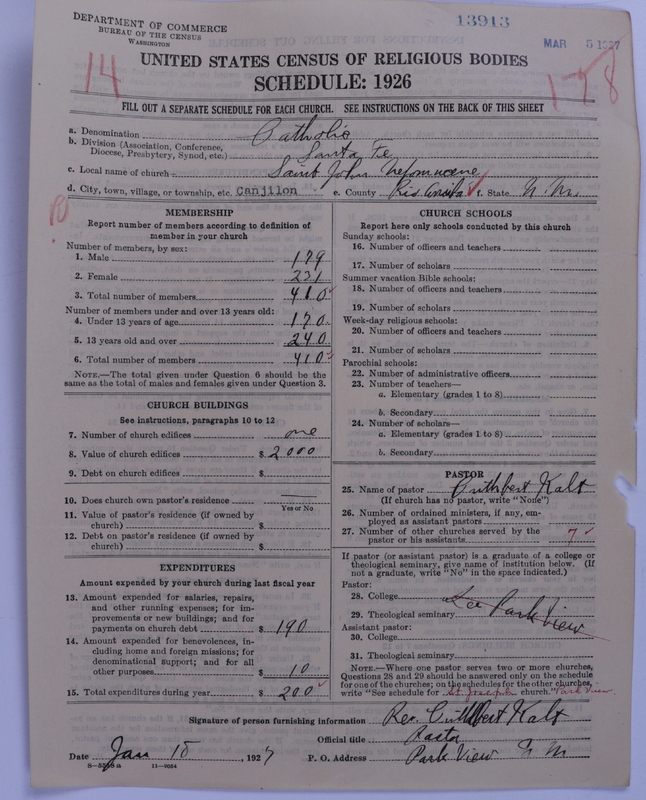 DEPARTMENT OF COMMERCE
BUREAU OF THE CENSUS
WASHINGTON
13913
MAR 5 1927
14
178
UNITED STATES CENSUS OF RELIGIOUS BODIES
SCHEDULE: 1926
FILL OUT A SEPARATE SCHEDULE FOR EACH CHURCH. SEE INSTRUCTIONS ON THE BACK OF THIS SHEET
a. Denomination Catholic
b. Division (Association, Conference, Diocese, Presbytery, Synod, etc.) Santa Fe
c. Local name of church Saint John Nepomucene
d. City, town, village, or township, etc. Canjilon e. County Rio Arriba f. State N. M.
MEMBERSHIP
Report number of members according to definition of
member in your church
Number of members, by sex:
1. Male 179
2. Female 231
3. Total number of members 410
Number of members under and over 13 years old:
4. Under 13 years of age 170
5. 13 years old and over 240
6. Total number of members 410
NOTE.—The total given under Question 6 should be the
same as the total of males and females given under Question 3.
CHURCH BUILDINGS
See instructions, paragraphs 10 to 12
7. Number of church edifices one
8. Value of church edifices $ 2000
9. Debt on church edifices $
10. Does church own pastor's residence
Yes or No
11. Value of pastor's residence (if owned by
church) $
12. Debt on pastor's residence (if owned by
church) $
EXPENDITURES
Amount expended by your church during last fiscal year
13. Amount expended for salaries, repairs,
and other running expenses; for im-
provements or new buildings; and for
payments on church debt $ 190
14. Amount expended for benevolences, in-
cluding home and foreign missions; for
denominational support; and for all
other purposes $ 10
15. Total expenditures during year $ 200
CHURCH SCHOOLS
Report here only schools conducted by this church
Sunday schools:
16. Number of officers and teachers
17. Number of scholars
Summer vacation Bible schools:
18. Number of officers and teachers
19. Number of scholars
Week-day religious schools:
20. Number of officers and teachers
21. Number of scholars
Parochial schools:
22. Number of administrative officers
23. Number of teachers—
a. Elementary (grades 1 to 8)
b. Secondary
24. Number of scholars—
a. Elementary (grades 1 to 8)
b. Secondary
PASTOR
25. Name of pastor Cuthbert Kalt
(If church has no pastor, write "None")
26. Number of ordained ministers, if any, em-
ployed as assistant pastors
27. Number of other churches served by the
pastor or his assistants 7
If pastor (or assistant pastor) is a graduate of a college or
theological seminary, give name of institution below. (If
not a graduate, write "No" in the space indicated.)
Pastor:
28. College
See Park View
29. Theological seminary
Assistant pastor:
30. College
31. Theological seminary
NOTE.—Where one pastor serves two or more churches,
Questions 28 and 29 should be answered only on the schedule
for one of the churches; on the schedules for the other churches,
write "See schedule for St. Joseph church." Park View
Signature of person furnishing information Rev. Cuthbert Kalt
Official title Pastor
Date Jan 18, 1927 P. O. Address Park View N M
11—9034